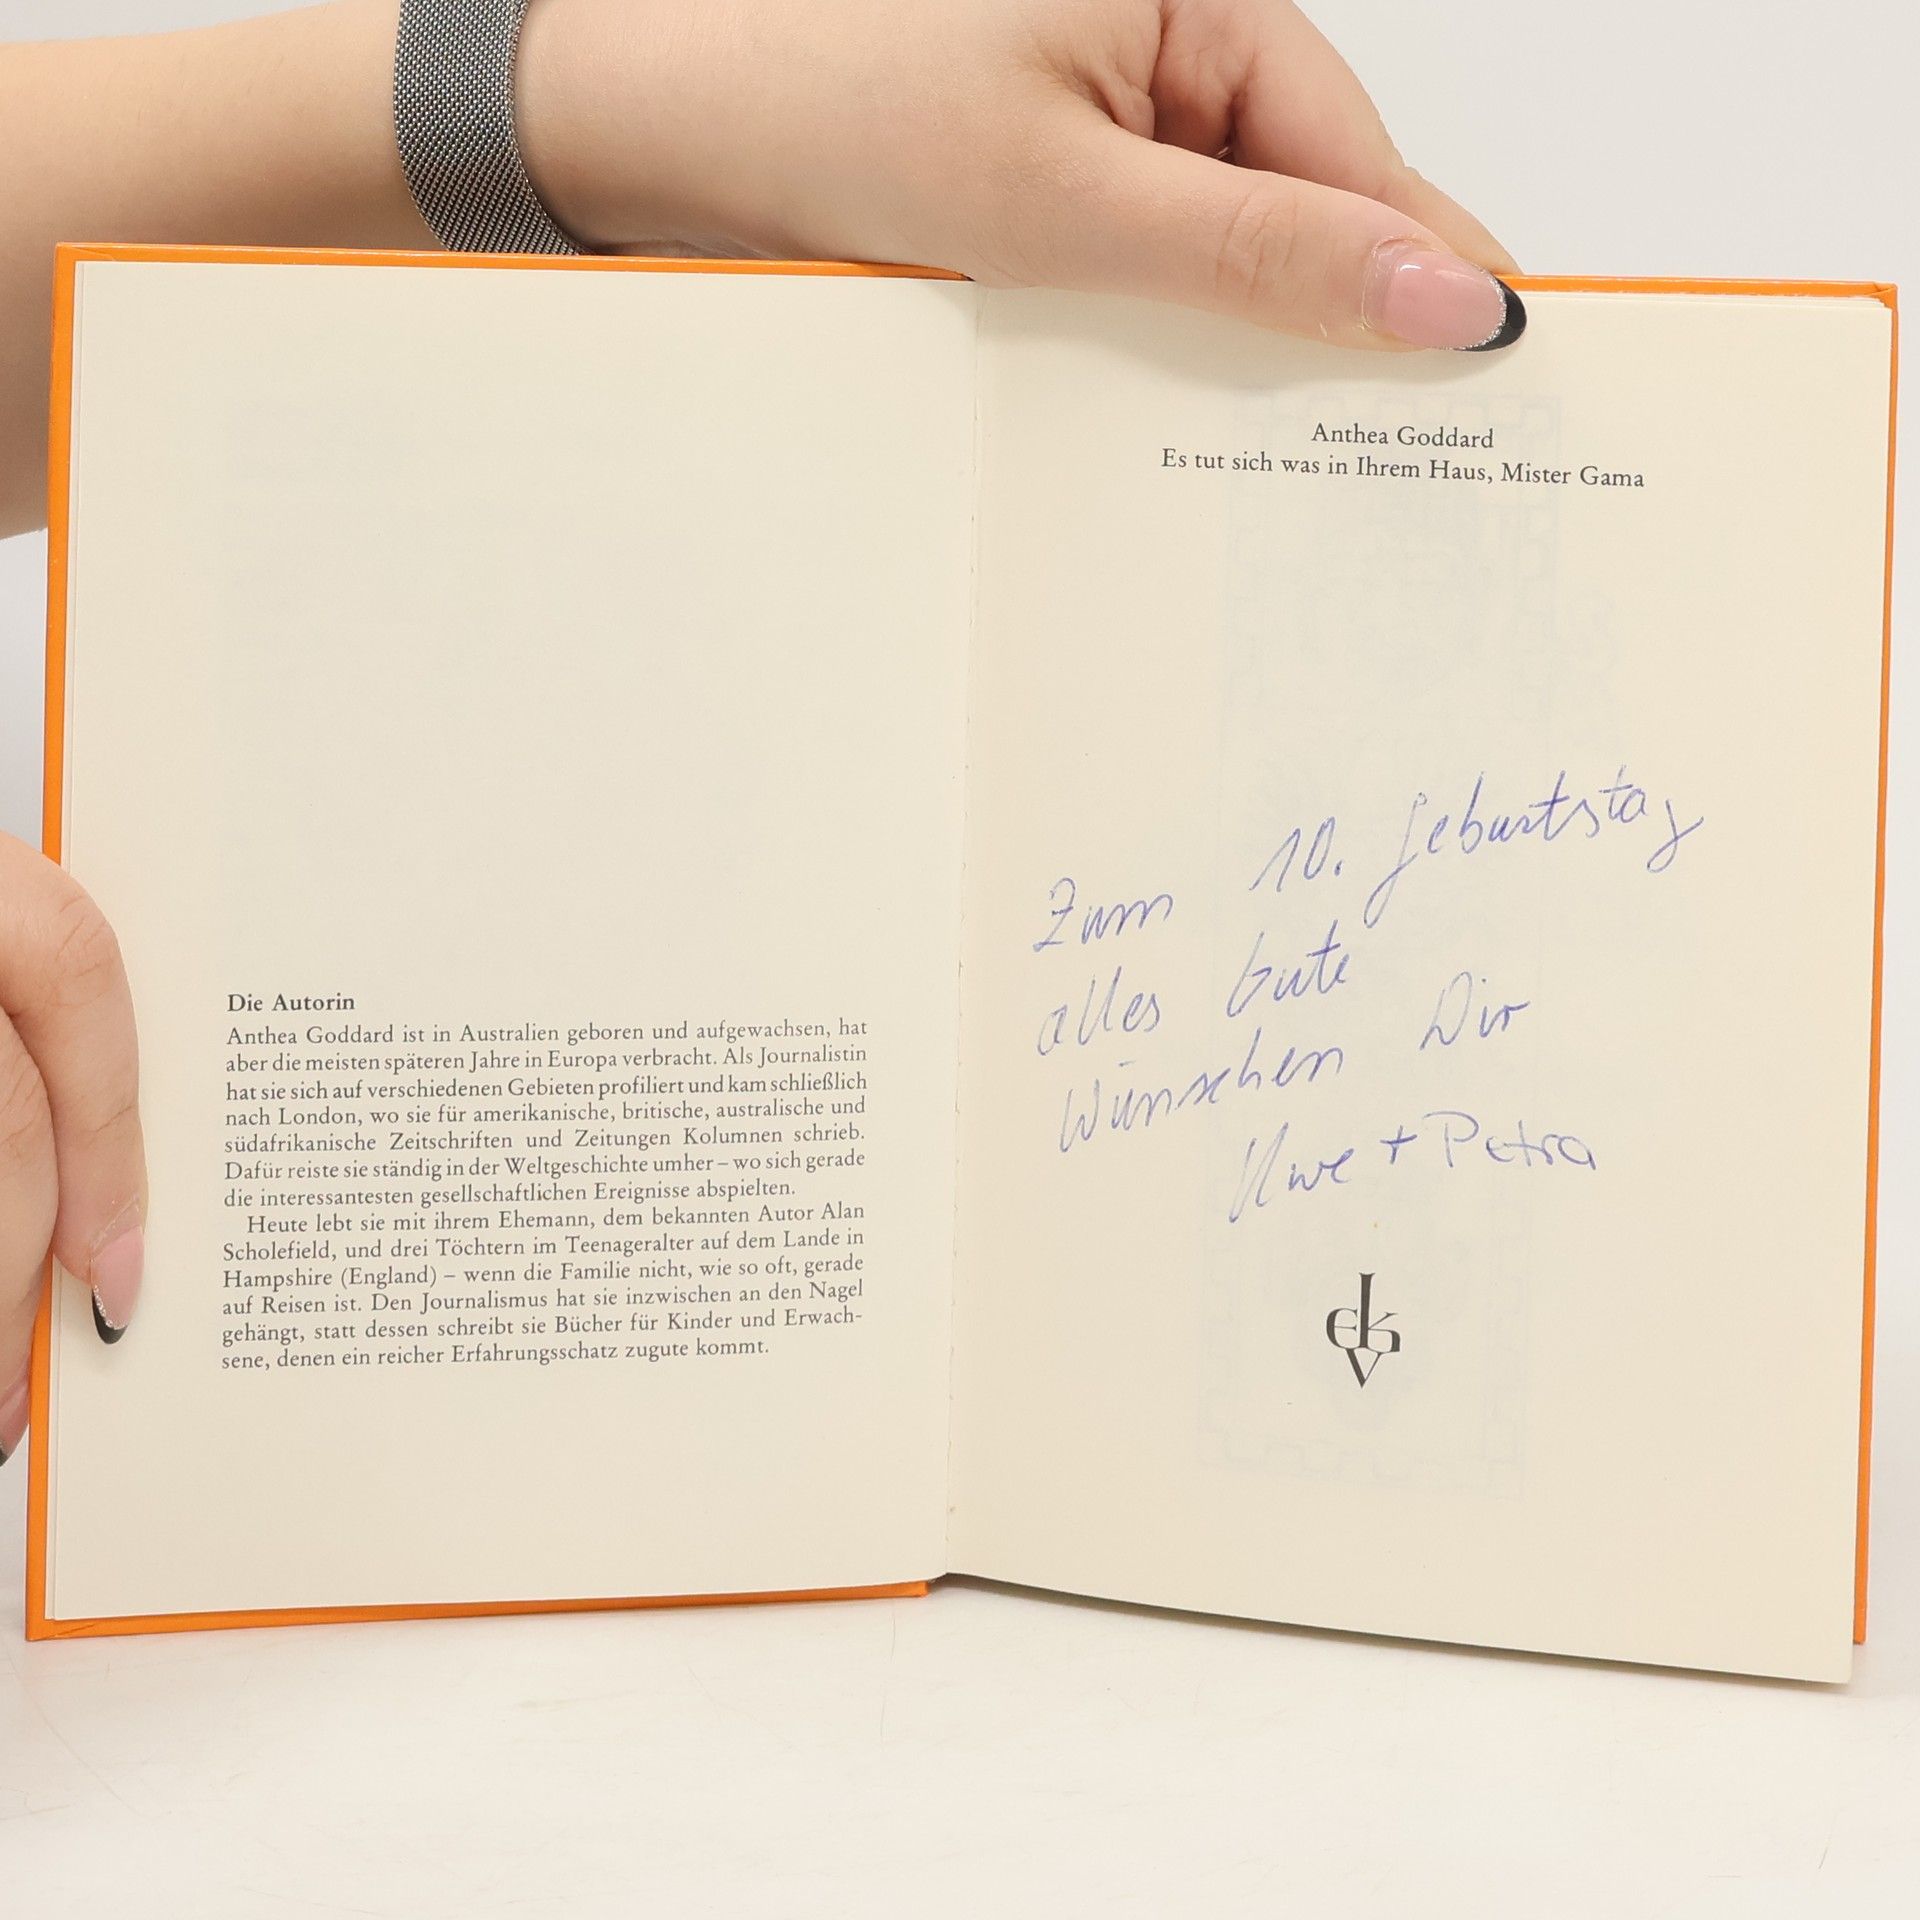 Die Autorin
Anthea Goddard ist in Australien geboren und aufgewachsen, hat
aber die meisten späteren Jahre in Europa verbracht. Als Journalistin
hat sie sich auf verschiedenen Gebieten profiliert und kam schließlich
nach London, wo sie für amerikanische, britische, australische und
südafrikanische Zeitschriften und Zeitungen Kolumnen schrieb.
Dafür reiste sie ständig in der Weltgeschichte umher – wo sich gerade
die interessantesten gesellschaftlichen Ereignisse abspielten.
Heute lebt sie mit ihrem Ehemann, dem bekannten Autor Alan
Scholefield, und drei Töchtern im Teenageralter auf dem Lande in
Hampshire (England) – wenn die Familie nicht, wie so oft, gerade
auf Reisen ist. Den Journalismus hat sie inzwischen an den Nagel
gehängt, statt dessen schreibt sie Bücher für Kinder und Erwach-
sene, denen ein reicher Erfahrungsschatz zugute kommt.
Anthea Goddard
Es tut sich was in Ihrem Haus, Mister Gama
Zum 10. Geburtstag
alles Gute
Wünschen Dir
Uwe + Petra
ekv